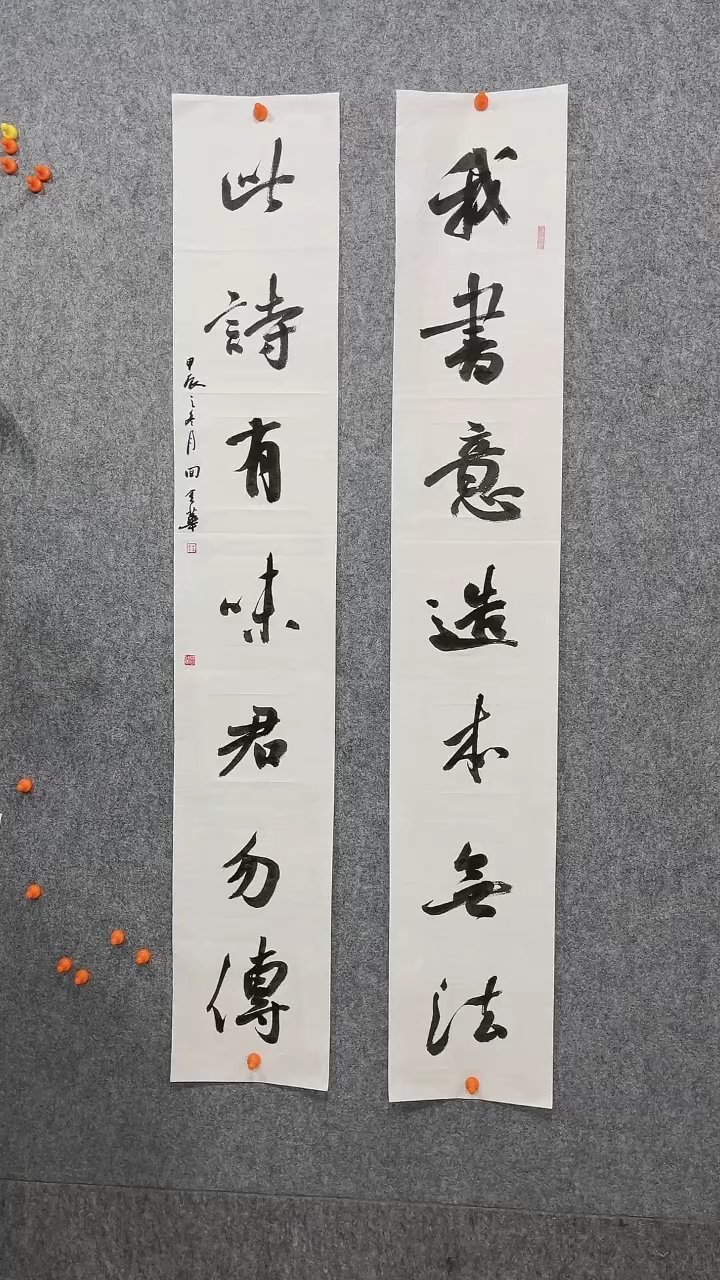 我書意造本無法
此詩有味君勿傳
甲辰之冬月 田
華